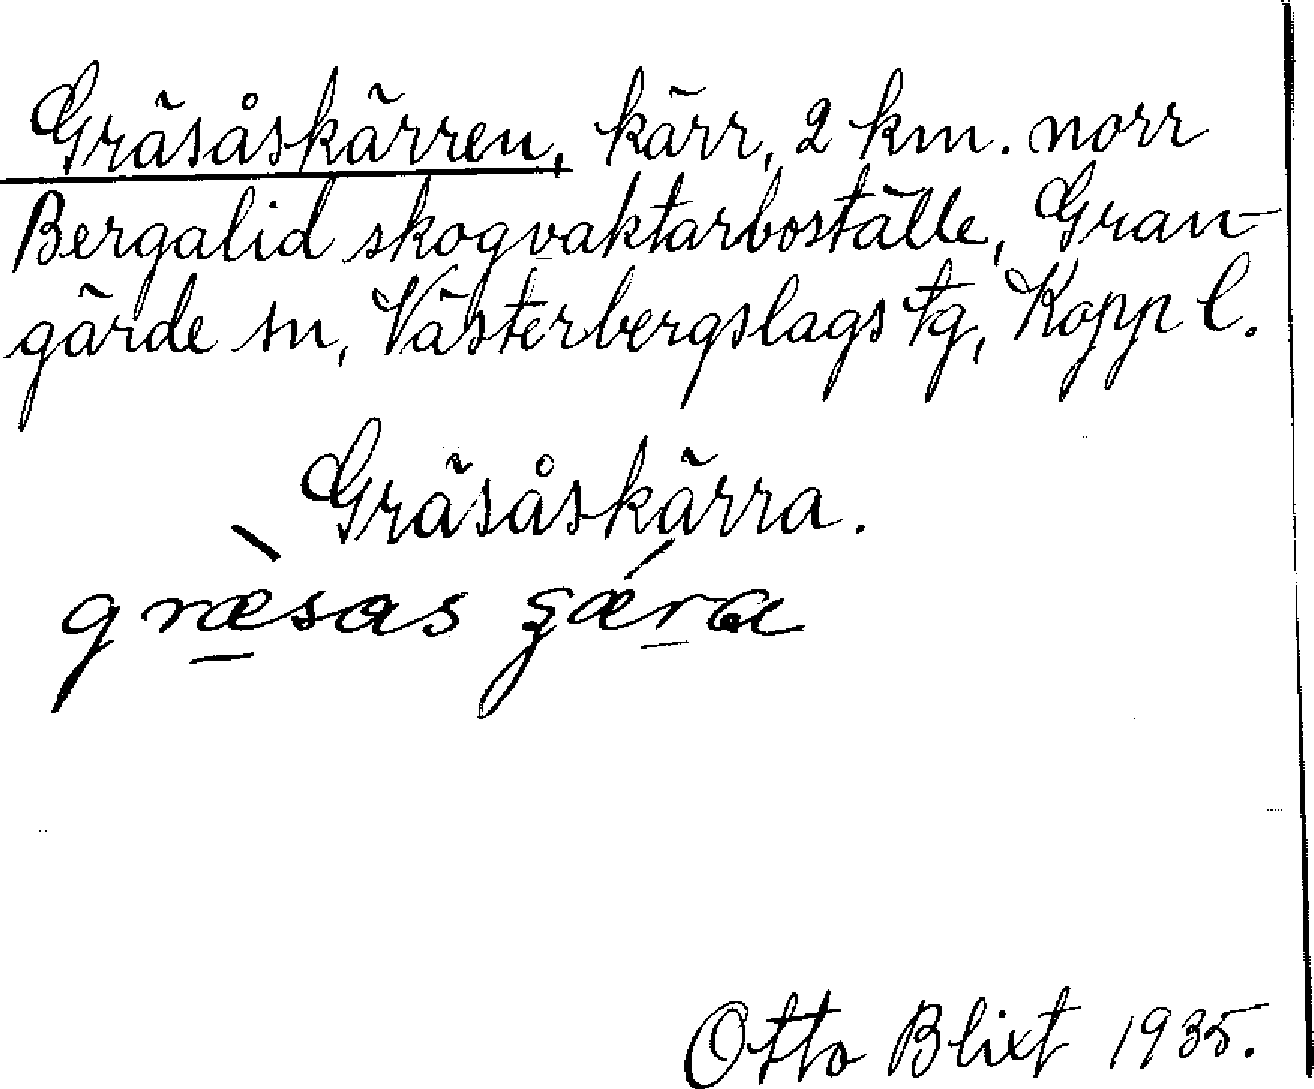 Gräsåskärren, kärr, 2 km. norr
Bergalid skogvaktarboställe, Gran-
gärde sn, Västerbergslags tg, Kopp l.
Gräsåskärra.
Otto Blixt 1935.